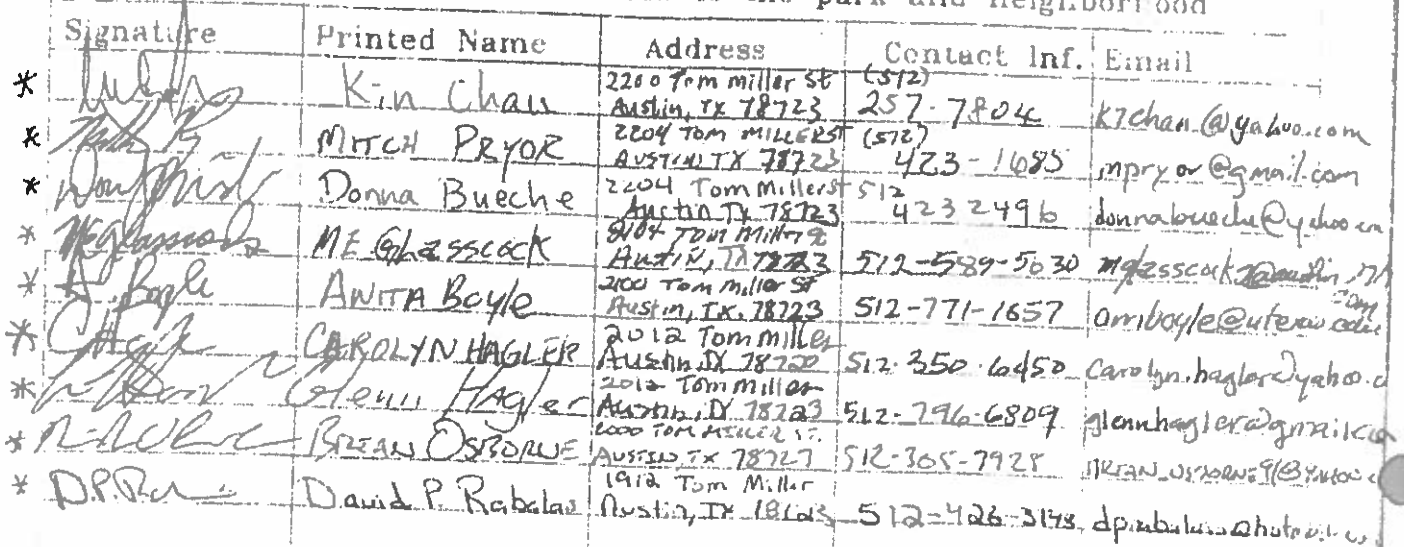 the park and neighborhood
Signature Printed Name Address Contact Inf. Email
* Kin Chan 2200 Tom Miller St (512)
Austin, TX 78723 257-7804 k7chan@yahoo.com
* MITCH PRYOR 2204 TOM MILLER ST (512)
AUSTIN TX 78723 423-1685 mpryor@gmail.com
* Donna Bueche 2204 Tom Miller St 512
Austin TX 78723 423 2496 donnabueche@yahoo.com
* ME Glasscock Tom Miller
Austin, TX 78723 512-589-5030
* A. Boyle ANITA BOYLE 2100 Tom Miller St
Austin, TX. 78723 512-771-1657
* CAROLYN HAGLER 2012 Tom Miller
Austin, TX 512-350-6450 Carolyn.hagler@yahoo.c
* Glenn Hagler 2012 Tom Miller
Austin, TX 78723 512-796-6809 glennhagler@gmail.co
* BRIAN OSBORNE 2000 TOM MILLER ST.
AUSTIN TX 78727 512-305-7928
* David P. Rabalais 1912 Tom Miller
Austin, TX 512-426-3148